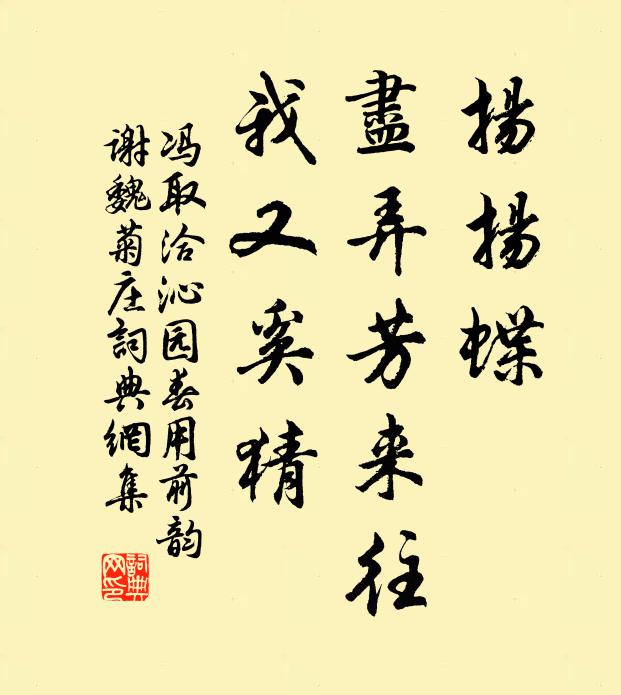 揚揚蝶
盡弄芳来往
我又奚猜
冯取洽沁园春用前韵
谢魏菊庄詞典網集
詞典网印